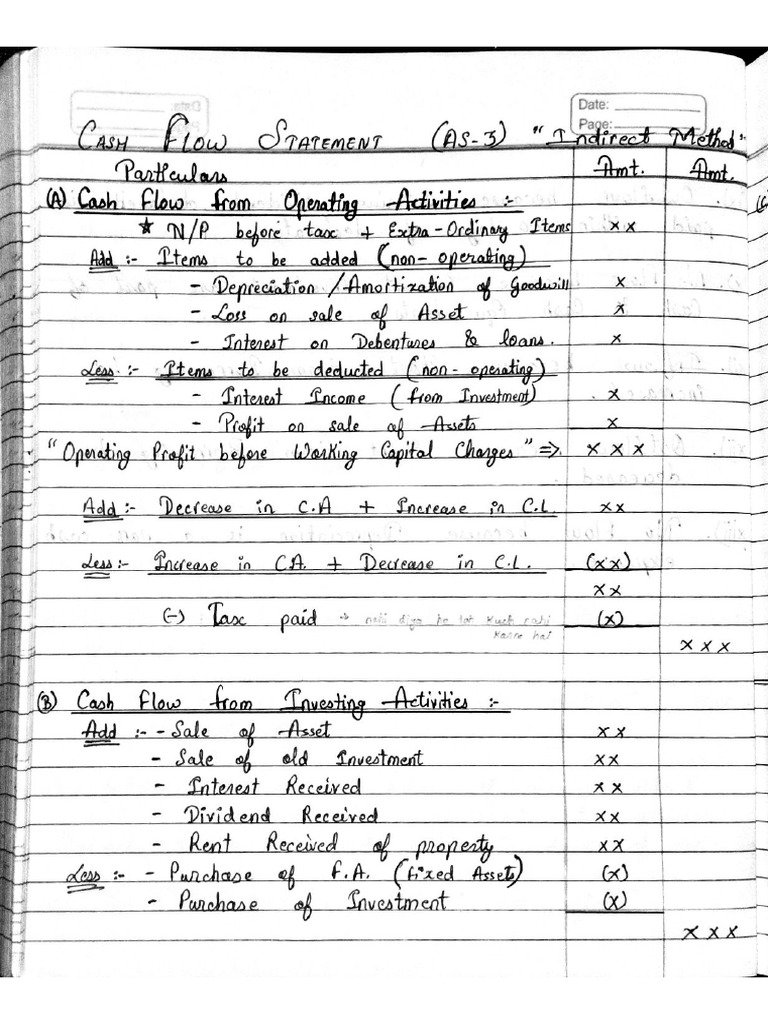 Date:
Page:
CASH FLOW STATEMENT (AS-3) "Indirect Method"
Particulars Amt. Amt.
(A) Cash Flow from Operating Activities :-
★ N/P before tax + Extra-Ordinary Items x x
Add :- Items to be added (non-operating)
- Depreciation / Amortization of Goodwill x
- Loss on sale of Asset x
- Interest on Debentures & loans. x
Less :- Items to be deducted (non-operating)
- Interest Income (from Investment) x
- Profit on sale of Assets x
"Operating Profit before Working Capital Charges" => x x x
Add :- Decrease in C.A + Increase in C.L. x x
Less :- Increase in CA. + Decrease in C.L. (x x)
x x
(-) Tax paid → nahi diya he toh kuch nahi (x)
karna hai
x x x
(B) Cash Flow from Investing Activities :-
Add :- - Sale of Asset x x
- Sale of old Investment x x
- Interest Received x x
- Dividend Received x x
- Rent Received of property x x
Less :- - Purchase of F.A. (fixed Assets) (x)
- Purchase of Investment (x)
x x x